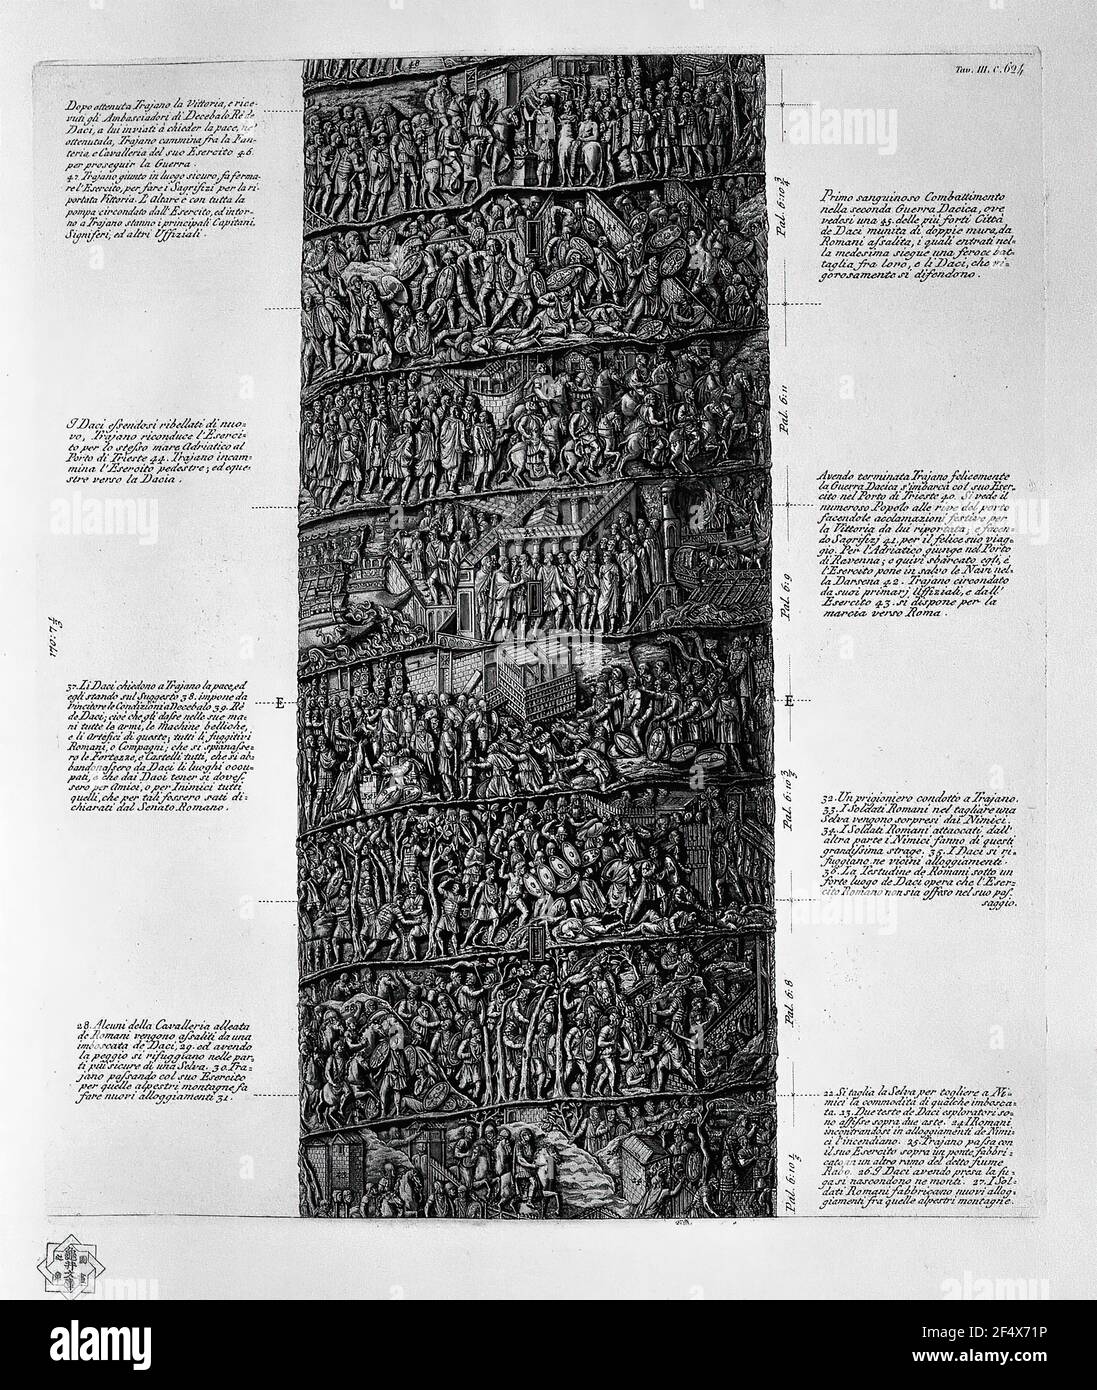 Tav. III. C. 624
Dopo ottenuta Trajano la Vittoria, e rice-
vuti gli Ambasciadori di Decebalo Rè de
Daci, a lui inviati à chieder la pace, nè
ottenutala, Trajano cammina fra la Fan-
teria, e Cavalleria del suo Esercito 46.
per proseguir la Guerra.
47. Trajano giunto in luogo sicuro, fa ferma-
re l'Esercito, per fare i Sagrifizj per la ri-
portata Vittoria. L'Altare è con tutta la
pompa circondato dall'Esercito, ed intor-
no a Trajano stanno i principali Capitani,
Signiferi, ed altri Uffiziali.
48
Primo sanguinoso Combattimento
nella seconda Guerra Dacica, ove
vedesi una 45. delle più forti Città
de Daci munita di doppie mura, da
Romani assalita, i quali entrati nel-
la medesima siegue una feroce bat-
taglia fra loro, e li Daci, che vi-
gorosamente si difendono.
Pal. 6:10 3/4
I Daci essendosi ribellati di nuo-
vo, Trajano riconduce l'Eserci-
to per lo stesso mare Adriatico al
Porto di Trieste 44. Trajano incam-
mina l'Esercito pedestre, ed eque-
stre verso la Dacia.
Pal. 6:11
Avendo terminata Trajano felicemente
la Guerra Dacica s'imbarca col suo Eser-
cito nel Porto di Trieste 40. Si vede il
numeroso Popolo alle rive del porto
facendole acclamazioni festive per
la Vittoria da lui riportata; e facen-
do Sagrifizj 41. per il felice suo viag-
gio. Per l'Adriatico giunge nel Porto
di Ravenna; e quivi sbarcato egli, e
l'Esercito pone in salvo le Navi nel-
la Darsena 42. Trajano circondato
da suoi primarj Uffiziali, e dall'
Esercito 43. si dispone per la
marcia verso Roma.
Pal. 6:9
37. Li Daci chiedono a Trajano la pace, ed
egli stando sul Suggesto 38. impone da
Vincitore le Condizioni a Decebalo 39. Rè
de Daci; cioè che gli dasse nelle sue ma-
ni tutte le armi, le Machine belliche,
e li Artefici di queste; tutti li fuggitivi
Romani, o Compagni; che si spianasse-
ro le Fortezze, e Castelli tutti, che si ab-
bandonassero da Daci li luoghi occu-
pati, e che dai Daci tener si doves-
sero per Amici, o per Inimici tutti
quelli, che per tali fossero stati di-
chiarati dal Senato Romano.
E
E
Pal. 6:10
32. Un prigioniero condotto a Trajano.
33. I Soldati Romani nel tagliare una
Selva vengono sorpresi dai Nimici.
34. I Soldati Romani attaccati dall'
altra parte i Nimici fanno di questi
grandissima strage. 35. I Daci si ri-
fuggiano ne vicini alloggiamenti.
36. La Testudine de Romani sotto un
forte luogo de Daci opera che l'Eser-
cito Romano non sia offeso nel suo pas-
saggio.
Pal. 6:8
28. Alcuni della Cavalleria alleata
de Romani vengono assaliti da una
imboscata de Daci, 29. ed avendo
la peggio si rifuggiano nelle par-
ti più sicure di una Selva. 30. Tra-
jano passando col suo Esercito
per quelle alpestri montagne fa
fare nuovi alloggiamenti 31.
22. Si taglia la Selva per togliere a Ni-
mici la commodità di qualche imbosca-
ta. 23. Due teste de Daci esploratori so-
no affisse sopra due aste. 24. I Romani
incontrandosi in alloggiamenti de Nimi-
ci l'incendiano. 25. Trajano passa con
il suo Esercito sopra un ponte fabbri-
cato in un altro ramo del detto fiume
Rabo. 26. I Daci avendo presa la fu-
ga si nascondono ne monti. 27. I Sol-
dati Romani fabbricano nuovi allog-
giamenti fra quelle alpestri montagne.
Pal. 6:10 1/2
alamy
Image ID: 2F4X71P
www.alamy.com